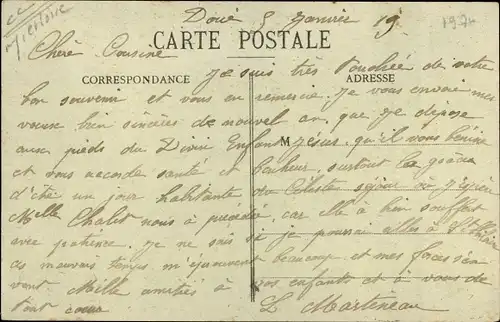 Doué 5 Janvier 19
1974
CARTE POSTALE
Chère Cousine
CORRESPONDANCE
ADRESSE
Je suis très touchée de votre
bon souvenir et vous en remercie. Je vous envoie mes
vœux bien sincères de nouvel an, que je dépose
aux pieds du Divin Enfant Jésus, qu'il vous bénisse
M
et vous accorde santé et bonheur, surtout la grâce
d'être un jour habitante du Céleste séjour où j'espère
Melle Chalet nous a précédé, car elle a bien souffert
avec patience. Je ne sais si je pourrai aller à
ces mauvais temps beaucoup et mes forces
vont Mille amitiés à vos enfants et à vous de
tout cœur L. Martineau